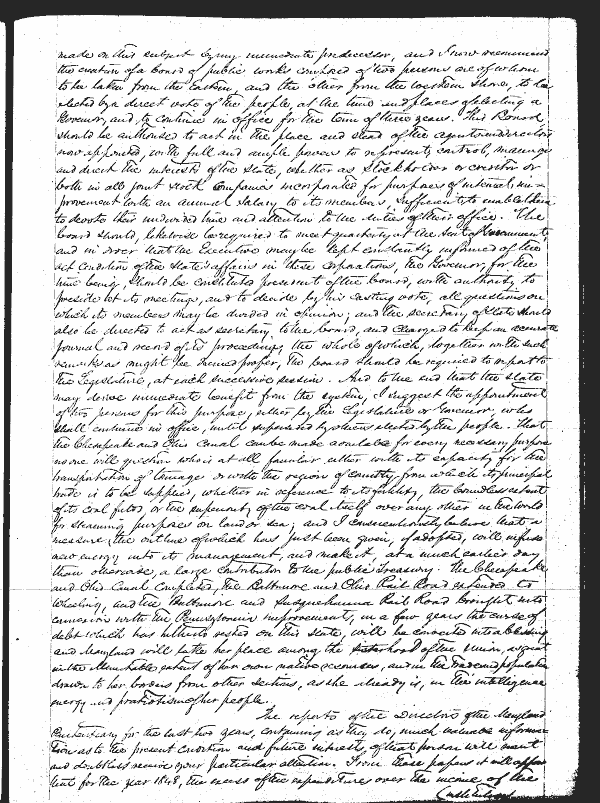 made on this subject by my immediate predecessor, and I now recommend
the creation of a board of public works composed of two persons one of whom
to be taken from the Eastern, and the other from the western Shore, to be
elected by a direct vote of the people, at the time and places of electing a
Governor, and to continue in office for the term of three years. This Board
should be authorised to act in the place and stead of the agents and directors
now appointed, with full and ample powers to represent, control, manage
and direct the interests of the State, whether as Stockholder or creditor or
both in all joint stock Companies incorporated for purposes of internal im-
provement with an annual salary to its members, sufficient to enable them
to devote their undivided time and attention to the duties of their office. The
board should, likewise be required to meet quarterly at the Seat of Government
and in order that the Executive may be kept constantly informed of the
act condition of the State's affairs in these corporations, the Governor, for the
time being, should be constituted president of the board, with authority to
preside at its meetings, and to decide by his casting vote, all questions on
which its members may be divided in opinion; and the secretary of State should
also be directed to act as secretary to the board, and charged to keep an accurate
journal and record of its proceedings, the whole of which, together with such
remarks as might be deemed proper, the board should be required to report to
the Legislature, at each successive session. And to the end that the State
may derive immediate benefit from the system, I suggest the appointment
of two persons for this purpose, either by the Legislature or Governor, who
shall continue in office, until superseded by others elected by the people. That
the Chesapeake and Ohio Canal can be made available for every necessary purpose
no one will question who is at all familiar either with its capacity for the
transportation of tonnage or with the region of country from which its principal
trade is to be supplied, whether in reference to its fertility, the boundless extent
of its coal fields, or the superiority of the coal itself over any other in the world
for steaming purposes on land or sea; and I conscientiously believe that a
measure, the outline of which has just been given, if adopted, will infuse
new energy into its management, and make it, at a much earlier day
than otherwise, a large contributor to the public Treasury. The Chesapeake
and Ohio Canal completed, the Baltimore and Ohio Rail Road extended to
Wheeling, and the Baltimore and Susquehanna Rail Road brought into
connexion with the Pennsylvania improvements, in a few years the curse of
debt which has hitherto rested on this State, will be converted into a blessing
and Maryland will take her place among the sisterhood of the Union, as great
in the remarkable extent of her own native resources, and in the trade and population
drawn to her borders from other sections, as she already is, in the intelligence
energy and patriotism of her people.
The reports of the Directors of the Maryland
Penitentiary for the last two years, containing as they do, much valuable informa-
tion as to the present condition and future interests, of that prison will merit
and doubtless receive your particular attention. From these papers it will appear
that for the year 1848, the excess of the expenditures over the income of the
Institution